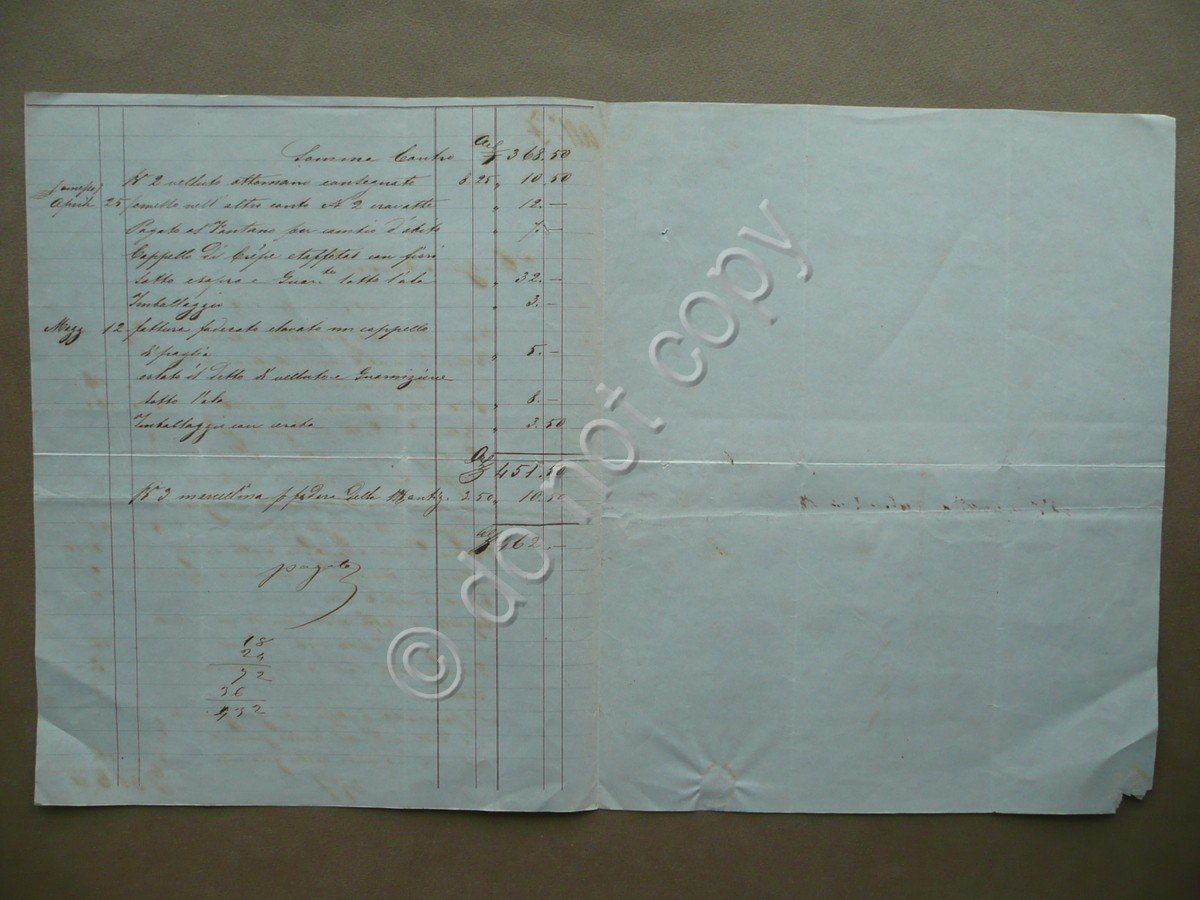 Somma Contro 368.50
N 2 velluto ottomano consegnato 5.25 " 10.50
April 25 omesso nell'altro conto N 2 cravatte " 12.—
Pagato al Fontana per cambio d'abito " 7.—
Cappello di Crêpe e taffetas con fiori
sotto e sopra e Guar.ne sotto l'ala " 32.—
Imballaggio " 3.—
Magg 12 fattura foderato e lavato un cappello
di paglia " 5.—
il detto di velluto e Guarnizione
sotto l'ala " 8.—
Imballaggio con cerata " 3.50
451.50
N 3 marcellina p fodera della 3.50 " 10.50
462.—
pagato
18
24
72
36
432
© do not copy